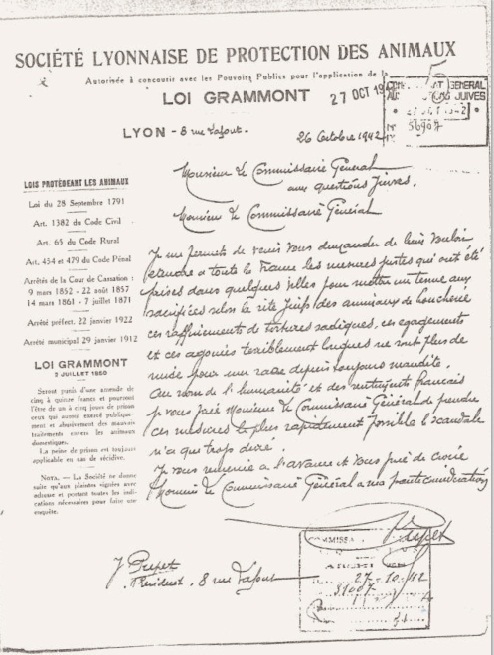 SOCIÉTÉ LYONNAISE DE PROTECTION DES ANIMAUX
Autorisée à concourir avec les Pouvoirs Publics pour l'application de la
LOI GRAMMONT
27 OCT 19
GÉNÉRAL
JUIVES
LYON - 8 rue Lafont.
26 Octobre 1942
Monsieur le Commissaire Général
aux questions Juives.
Monsieur le Commissaire Général
Je me permets de venir vous demander de bien vouloir
étendre à toute la France les mesures justes qui ont été
prises dans quelques villes pour mettre un terme aux
sacrifices selon le rite Juif des animaux de boucherie
ces raffinements de tortures sadiques, ces égorgements
et ces agonies terriblement longues ne sont plus de
mise pour une race depuis toujours maudite.
Au nom de l'humanité et des sentiments français
je vous prie Monsieur le Commissaire Général de prendre
ces mesures le plus rapidement possible le scandale
n'a que trop duré.
Je vous remercie à l'avance et vous prie de croire
Monsieur le Commissaire Général à ma haute considération
J Prepet
Président, 8 rue Lafont
COMMISSA
27-10-42
LOIS PROTÉGEANT LES ANIMAUX
Loi du 28 Septembre 1791
Art. 1382 du Code Civil
Art. 65 du Code Rural
Art. 454 et 479 du Code Pénal
Arrêtés de la Cour de Cassation :
9 mars 1852 - 22 août 1857
14 mars 1861 - 7 juillet 1871
Arrêté préfect. 22 janvier 1922
Arrêté municipal 29 janvier 1912
LOI GRAMMONT
2 JUILLET 1850
Seront punis d'une amende de
cinq à quinze francs et pourront
l'être de un à cinq jours de prison
ceux qui auront exercé publique-
ment et abusivement des mauvais
traitements envers les animaux
domestiques.
La peine de prison est toujours
applicable en cas de récidive.
NOTA. — La Société ne donne
suite qu'aux plaintes signées avec
adresse et portant toutes les indi-
cations nécessaires pour faire une
enquête.